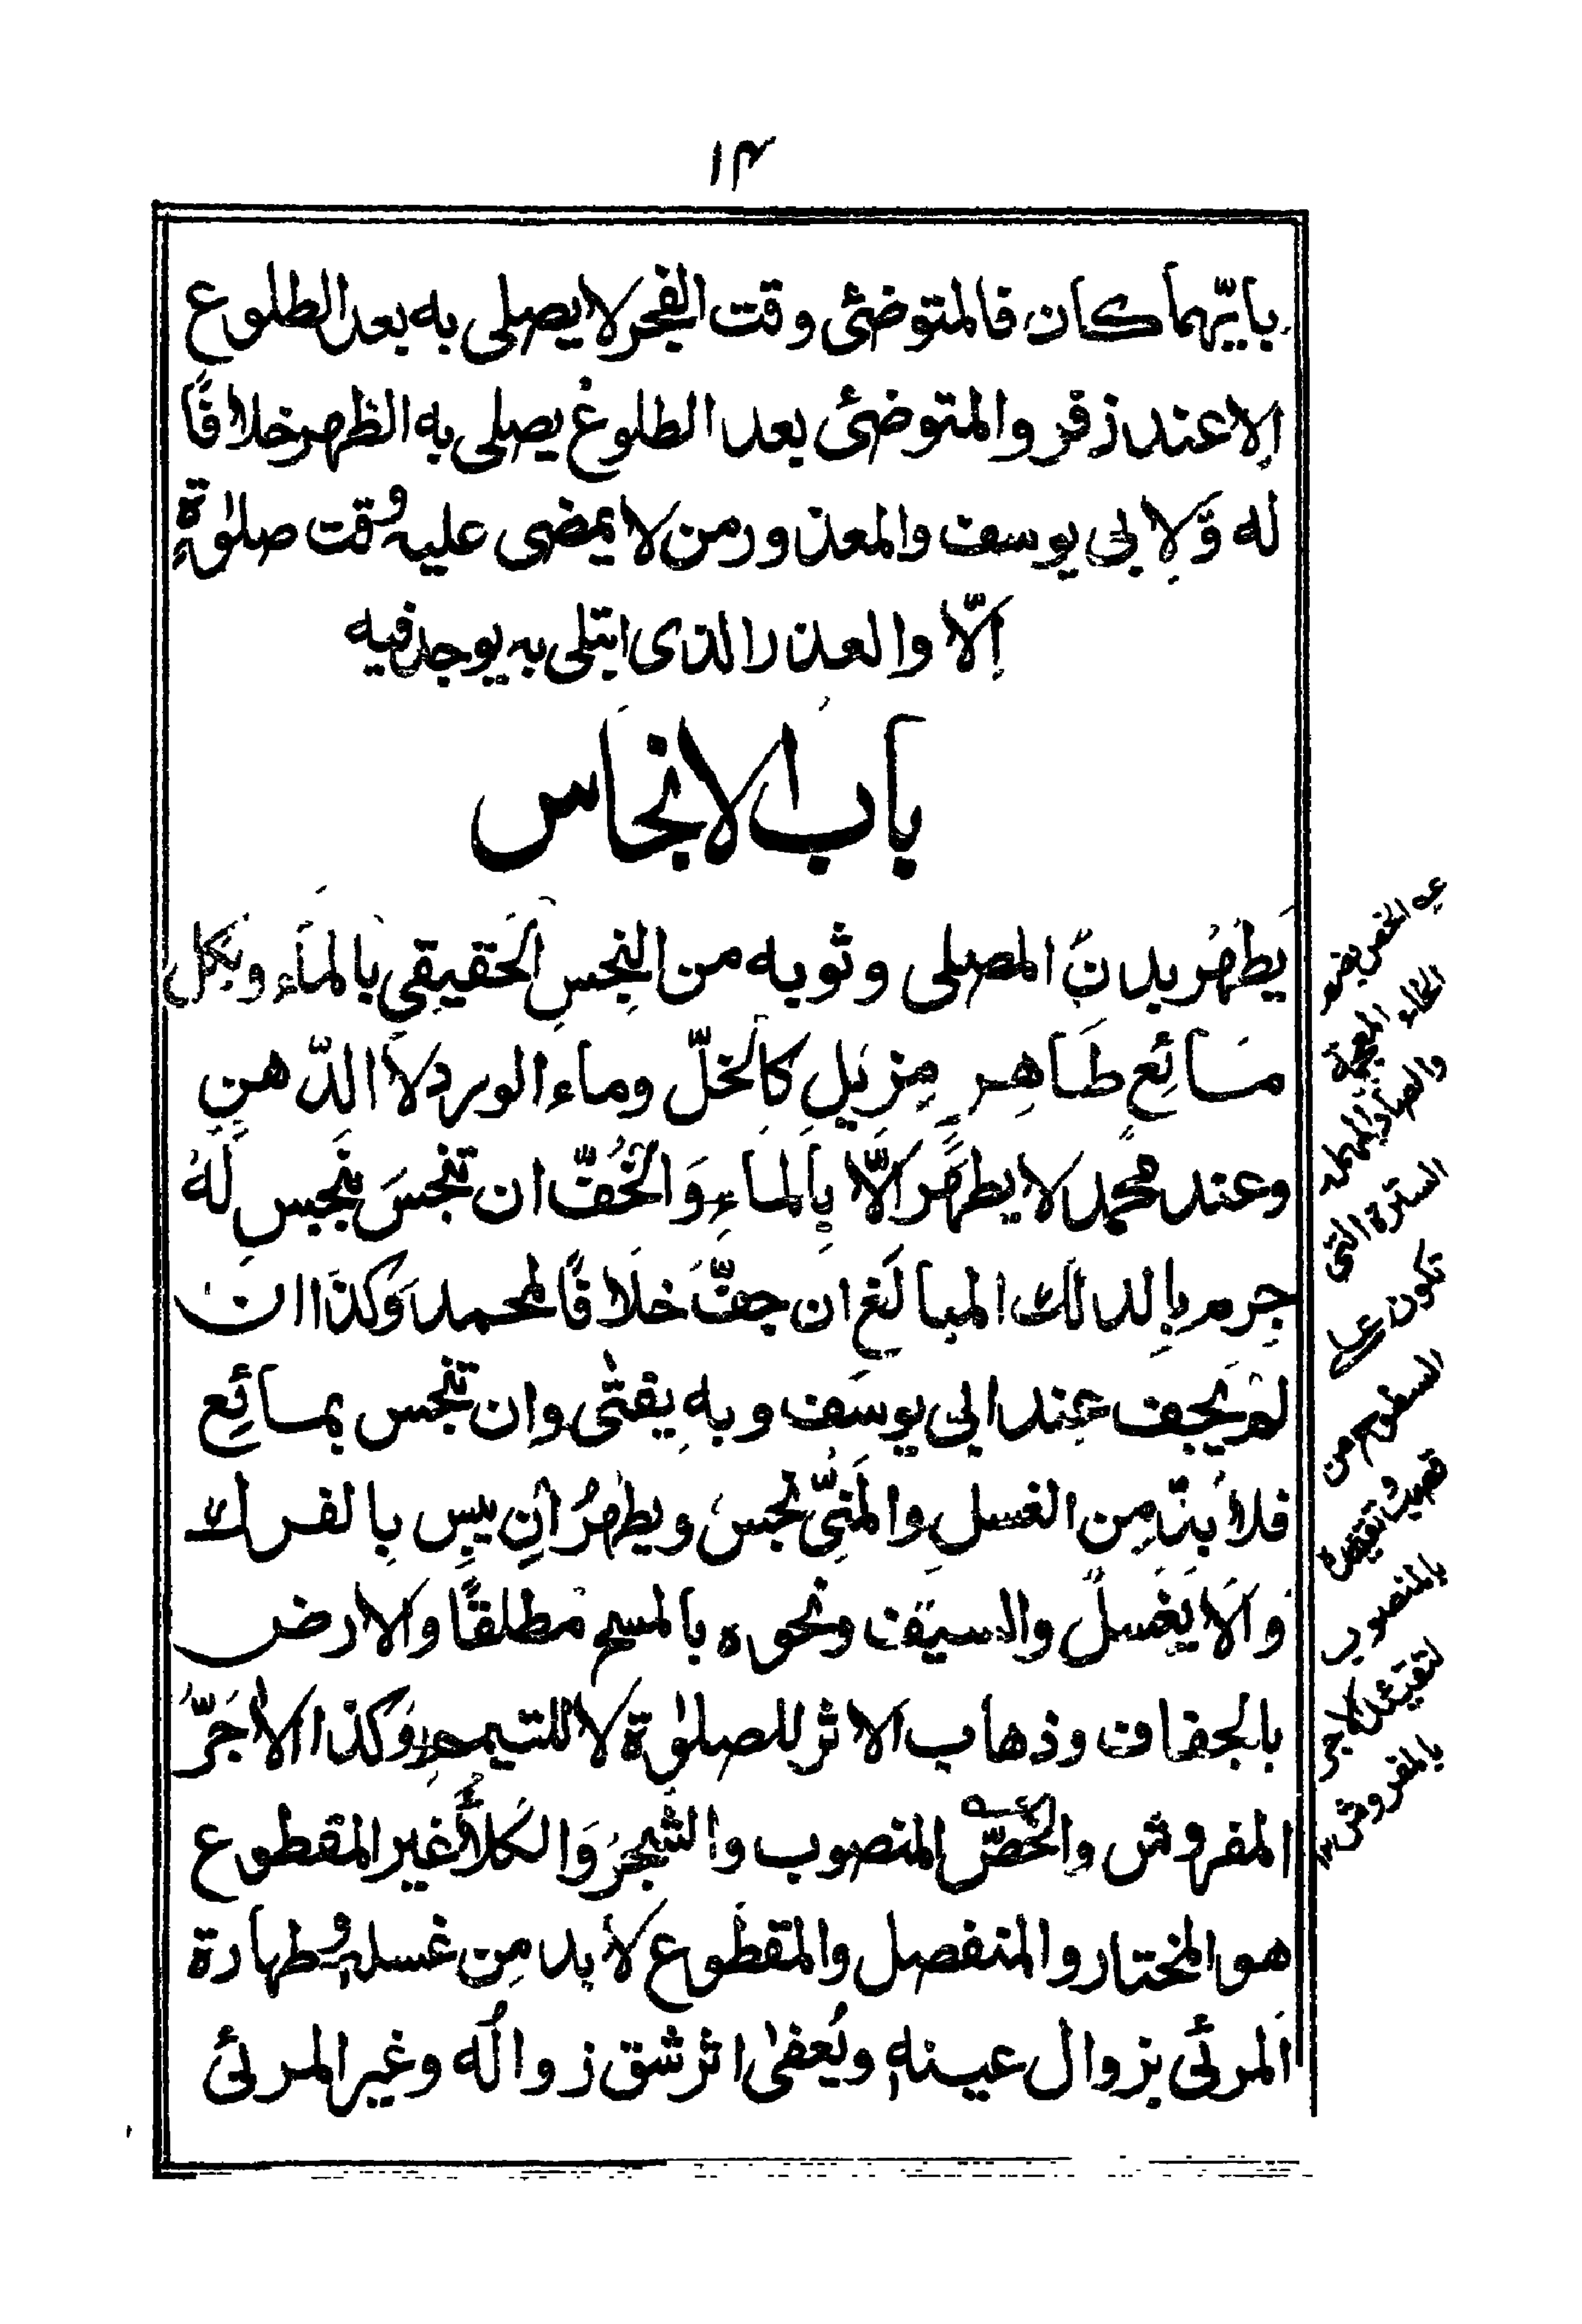 ١٣
بايّهما كان فالمتوضئ وقت الفجر لا يصلى به بعد الطلوع
اِلا عند زفر والمتوضئ بعد الطلوع يصلى به الظهر خلافًا
له وَّلِابى يوسف والمعذور من لا يمضى عليه وقت صلوٰةٍ
اِلّا والعذر الذى ابتلى به يوجد فيه
باب الانجاس
يَطهُر بدنُ المصلى وثوبه من النجسِ الحَقيقِى بالماء وبكل
مَائِعٍ طَاهِرٍ مِزيلٍ كالخلّ وماء الورد لا الدّهنِ
وعند محمد لا يطهر اِلّا بِالماءِ وَالخُفّ ان تنجسَ بنجسٍ لَهُ
جِرم بِالدلك المبالَغ ان جفَّ خلَافًا لمحمد وَكذا ان
لم يَجف عِند ابى يوسَف وبهٖ يفتٰى وان تنجس بمائِع
فلا بدّ مِن الغسلِ والمَنِىُّ نجسٌ ويطهرُ اِن يبِس بِالفرك
وَاِلَّا يُغسلُ والسيف ونحوه بالمسح مطلقًا والارض
بالجفاف وذهاب الاثر للصلوٰة لا للتيممِ وَكذا الاٰجُرّ
المفروش والخُصّ المنصوب والشَّجَرُ وَالكَلَأُ غير المقطوع
هو المختار والمنفصل والمقطوع لا بد مِن غسله وطهارة
المرئى بزوال عينهٖ ويُعفىٰ اثر شق زوالُه وغير المرئى
الخص بضم
الخاء المعجمة
والصاد المهملة
السترة التى
تكون على
السطوح من
قصب وتقييده
بالمنصوب
كتقييد الآجر
بالمفروش ١٢